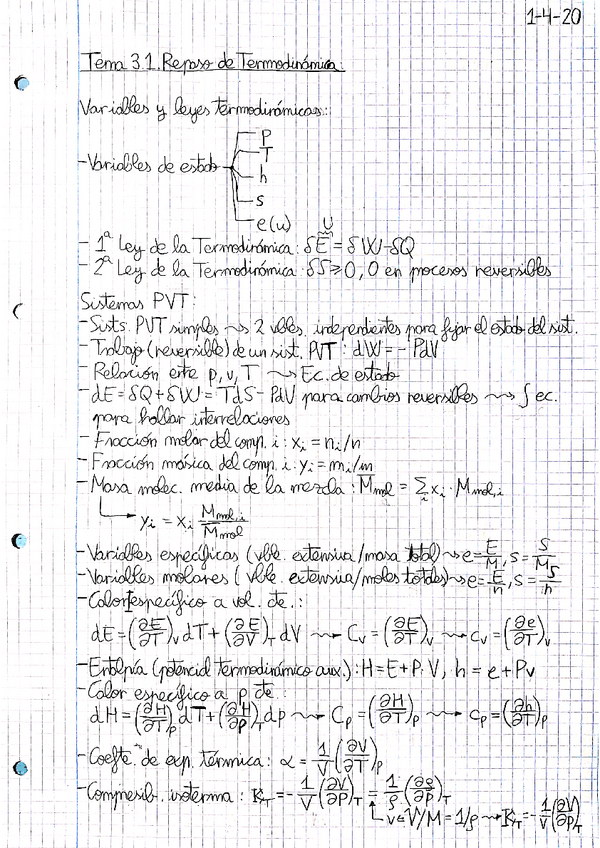 1-4-20
Tema 3.1. Repaso de Termodinámica:
Variables y leyes termodinámicas:
P
T
-Variables de estado
h
s
e(u)
U
- 1ª Ley de la Termodinámica: δE = δW-δQ
- 2ª Ley de la Termodinámica: δS≥0, 0 en procesos reversibles
Sistemas PVT:
-Sists. PVT simples ⇝ 2 vbles. independientes para fijar el estado del sist.
-Trabajo (reversible) de un sist. PVT: dW = - PdV
-Relación entre p, v, T ⇝ Ec. de estado
-dE = δQ + δW = TdS - PdV para cambios reversibles ⇝ ∫ ec.
para hallar interrelaciones
-Fracción molar del comp. i: xᵢ = nᵢ/n
-Fracción másica del comp. i: yᵢ = mᵢ/m
-Masa molec. media de la mezcla: M̄mol = Σᵢ xᵢ · Mmol,i
↳ yᵢ = xᵢ Mmol,i / M̄mol
-Variables específicas (vble. extensiva/masa total) ⇝ e = E/M, s = S/M
-Variables molares (vble. extensiva/moles totales) ⇝ e = E/n, s = S/n
-Calor específico a vol. cte.:
dE = (∂E/∂T)ᵥ dT + (∂E/∂V)_T dV ⇝ Cᵥ = (∂E/∂T)ᵥ ⇝ cᵥ = (∂e/∂T)ᵥ
-Entalpía (potencial termodinámico aux.): H = E + P·V, h = e + Pv
-Calor específico a p cte.:
dH = (∂H/∂T)ₚ dT + (∂H/∂P)_T dp ⇝ Cₚ = (∂H/∂T)ₚ ⇝ cₚ = (∂h/∂T)ₚ
-Coefte. de exp. térmica: α = 1/V (∂V/∂T)ₚ
-Compresib. isoterma: K_T = - 1/V (∂V/∂P)_T = 1/ρ (∂ρ/∂P)_T
↳ v = V/M = 1/ρ ⇝ K_T = - 1/v (∂v/∂P)_T